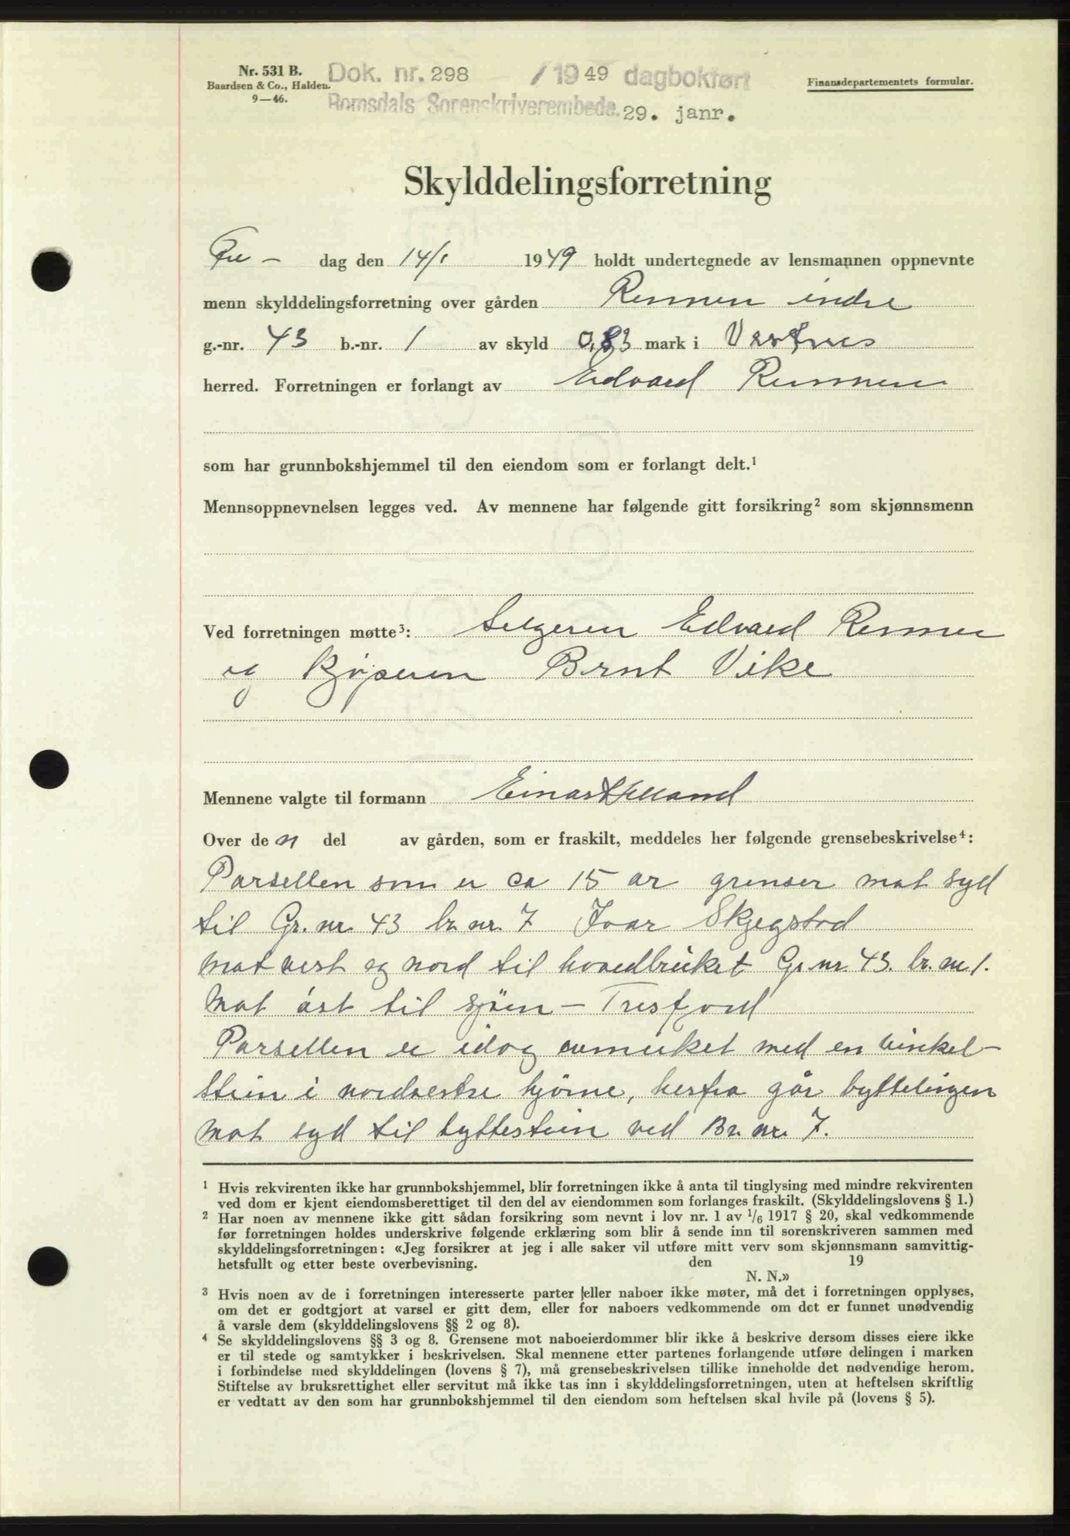 Nr. 531 B.
Baardsen & Co., Halden.
9—46.
Dok. nr. 298 / 1949 dagbokført
Romsdals Sorenskriverembede. 29. janr.
Finansdepartementets formular.
Skylddelingsforretning
Fre- dag den 14/1 1949 holdt undertegnede av lensmannen oppnevnte
menn skylddelingsforretning over gården Remmen indre
g.-nr. 43 b.-nr. 1 av skyld 0,83 mark i Vestnes
herred. Forretningen er forlangt av Edvard Remmen
som har grunnbokshjemmel til den eiendom som er forlangt delt.¹
Mennsoppnevnelsen legges ved. Av mennene har følgende gitt forsikring² som skjønnsmenn
Ved forretningen møtte³: Selgeren Edvard Remmen
og kjøperen Brnt Vike
Mennene valgte til formann Einar Helland
Over de n del av gården, som er fraskilt, meddeles her følgende grensebeskrivelse⁴:
Parsellen som er ca 15 ar grenser mot syd
til Gr. nr. 43 br. nr. 7 Ivar Skjegstad
mot vest og nord til hovedbruket Gr. nr. 43. br. nr 1.
Mot øst til sjøen - Tresfjord
Parsellen er idag avmerket med en vinkel-
stein i nordvestre hjørne, herfra går byttelinjen
mot syd til byttestein ved Br. nr. 7.
¹ Hvis rekvirenten ikke har grunnbokshjemmel, blir forretningen ikke å anta til tinglysing med mindre rekvirenten
ved dom er kjent eiendomsberettiget til den del av eiendommen som forlanges fraskilt. (Skylddelingslovens § 1.)
² Har noen av mennene ikke gitt sådan forsikring som nevnt i lov nr. 1 av 1/6 1917 § 20, skal vedkommende
før forretningen holdes underskrive følgende erklæring som blir å sende inn til sorenskriveren sammen med
skylddelingsforretningen: «Jeg forsikrer at jeg i alle saker vil utføre mitt verv som skjønnsmann samvittig-
hetsfullt og etter beste overbevisning. den 19
N. N.»
³ Hvis noen av de i forretningen interesserte parter eller naboer ikke møter, må det i forretningen opplyses,
om det er godtgjort at varsel er gitt dem, eller for naboers vedkommende om det er funnet unødvendig
å varsle dem (skylddelingslovens §§ 2 og 8).
⁴ Se skylddelingslovens §§ 3 og 8. Grensene mot naboeierdommer blir ikke å beskrive dersom disses eiere ikke
er til stede og samtykker i beskrivelsen. Skal mennene etter partenes forlangende utføre delingen i marken
i forbindelse med skylddelingen (lovens § 7), må grensebeskrivelsen tillike inneholde det nødvendige herom.
Stiftelse av bruksrettighet eller servitut må ikke tas inn i skylddelingsforretningen, uten at heftelsen skriftlig
er vedtatt av den som har grunnbokshjemmel til den eiendom som heftelsen skal hvile på (lovens § 5).